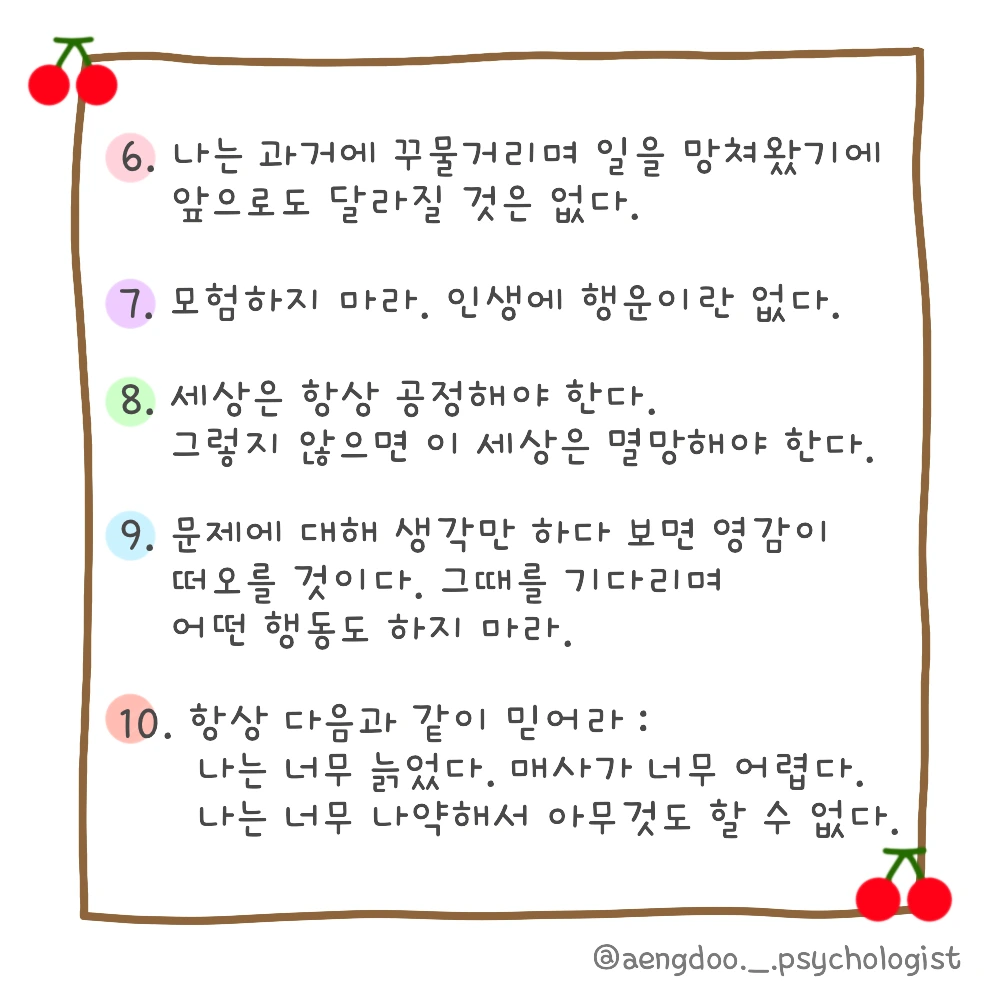 6. 나는 과거에 꾸물거리며 일을 망쳐왔기에
앞으로도 달라질 것은 없다.
7. 모험하지 마라. 인생에 행운이란 없다.
8. 세상은 항상 공정해야 한다.
그렇지 않으면 이 세상은 멸망해야 한다.
9. 문제에 대해 생각만 하다 보면 영감이
떠오를 것이다. 그때를 기다리며
어떤 행동도 하지 마라.
10. 항상 다음과 같이 믿어라 :
나는 너무 늙었다. 매사가 너무 어렵다.
나는 너무 나약해서 아무것도 할 수 없다.
@aengdoo._.psychologist